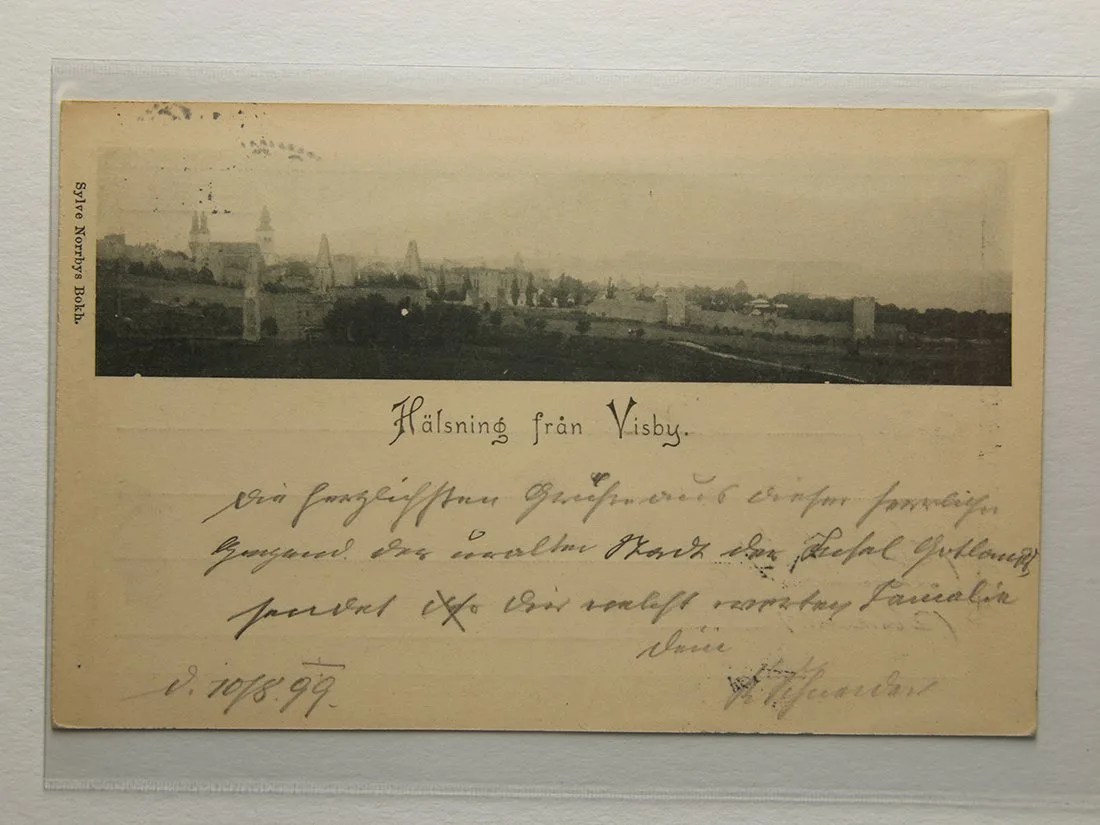 Sylve Norrbys Bokh.
Hälsning från Visby.
Die herzlichsten Grüße aus dieser herrliche
Gegend der uralten Stadt der Insel Gotland,
sendet Dir werten Familie
Dein
Schneider
d. 10/8. 99.